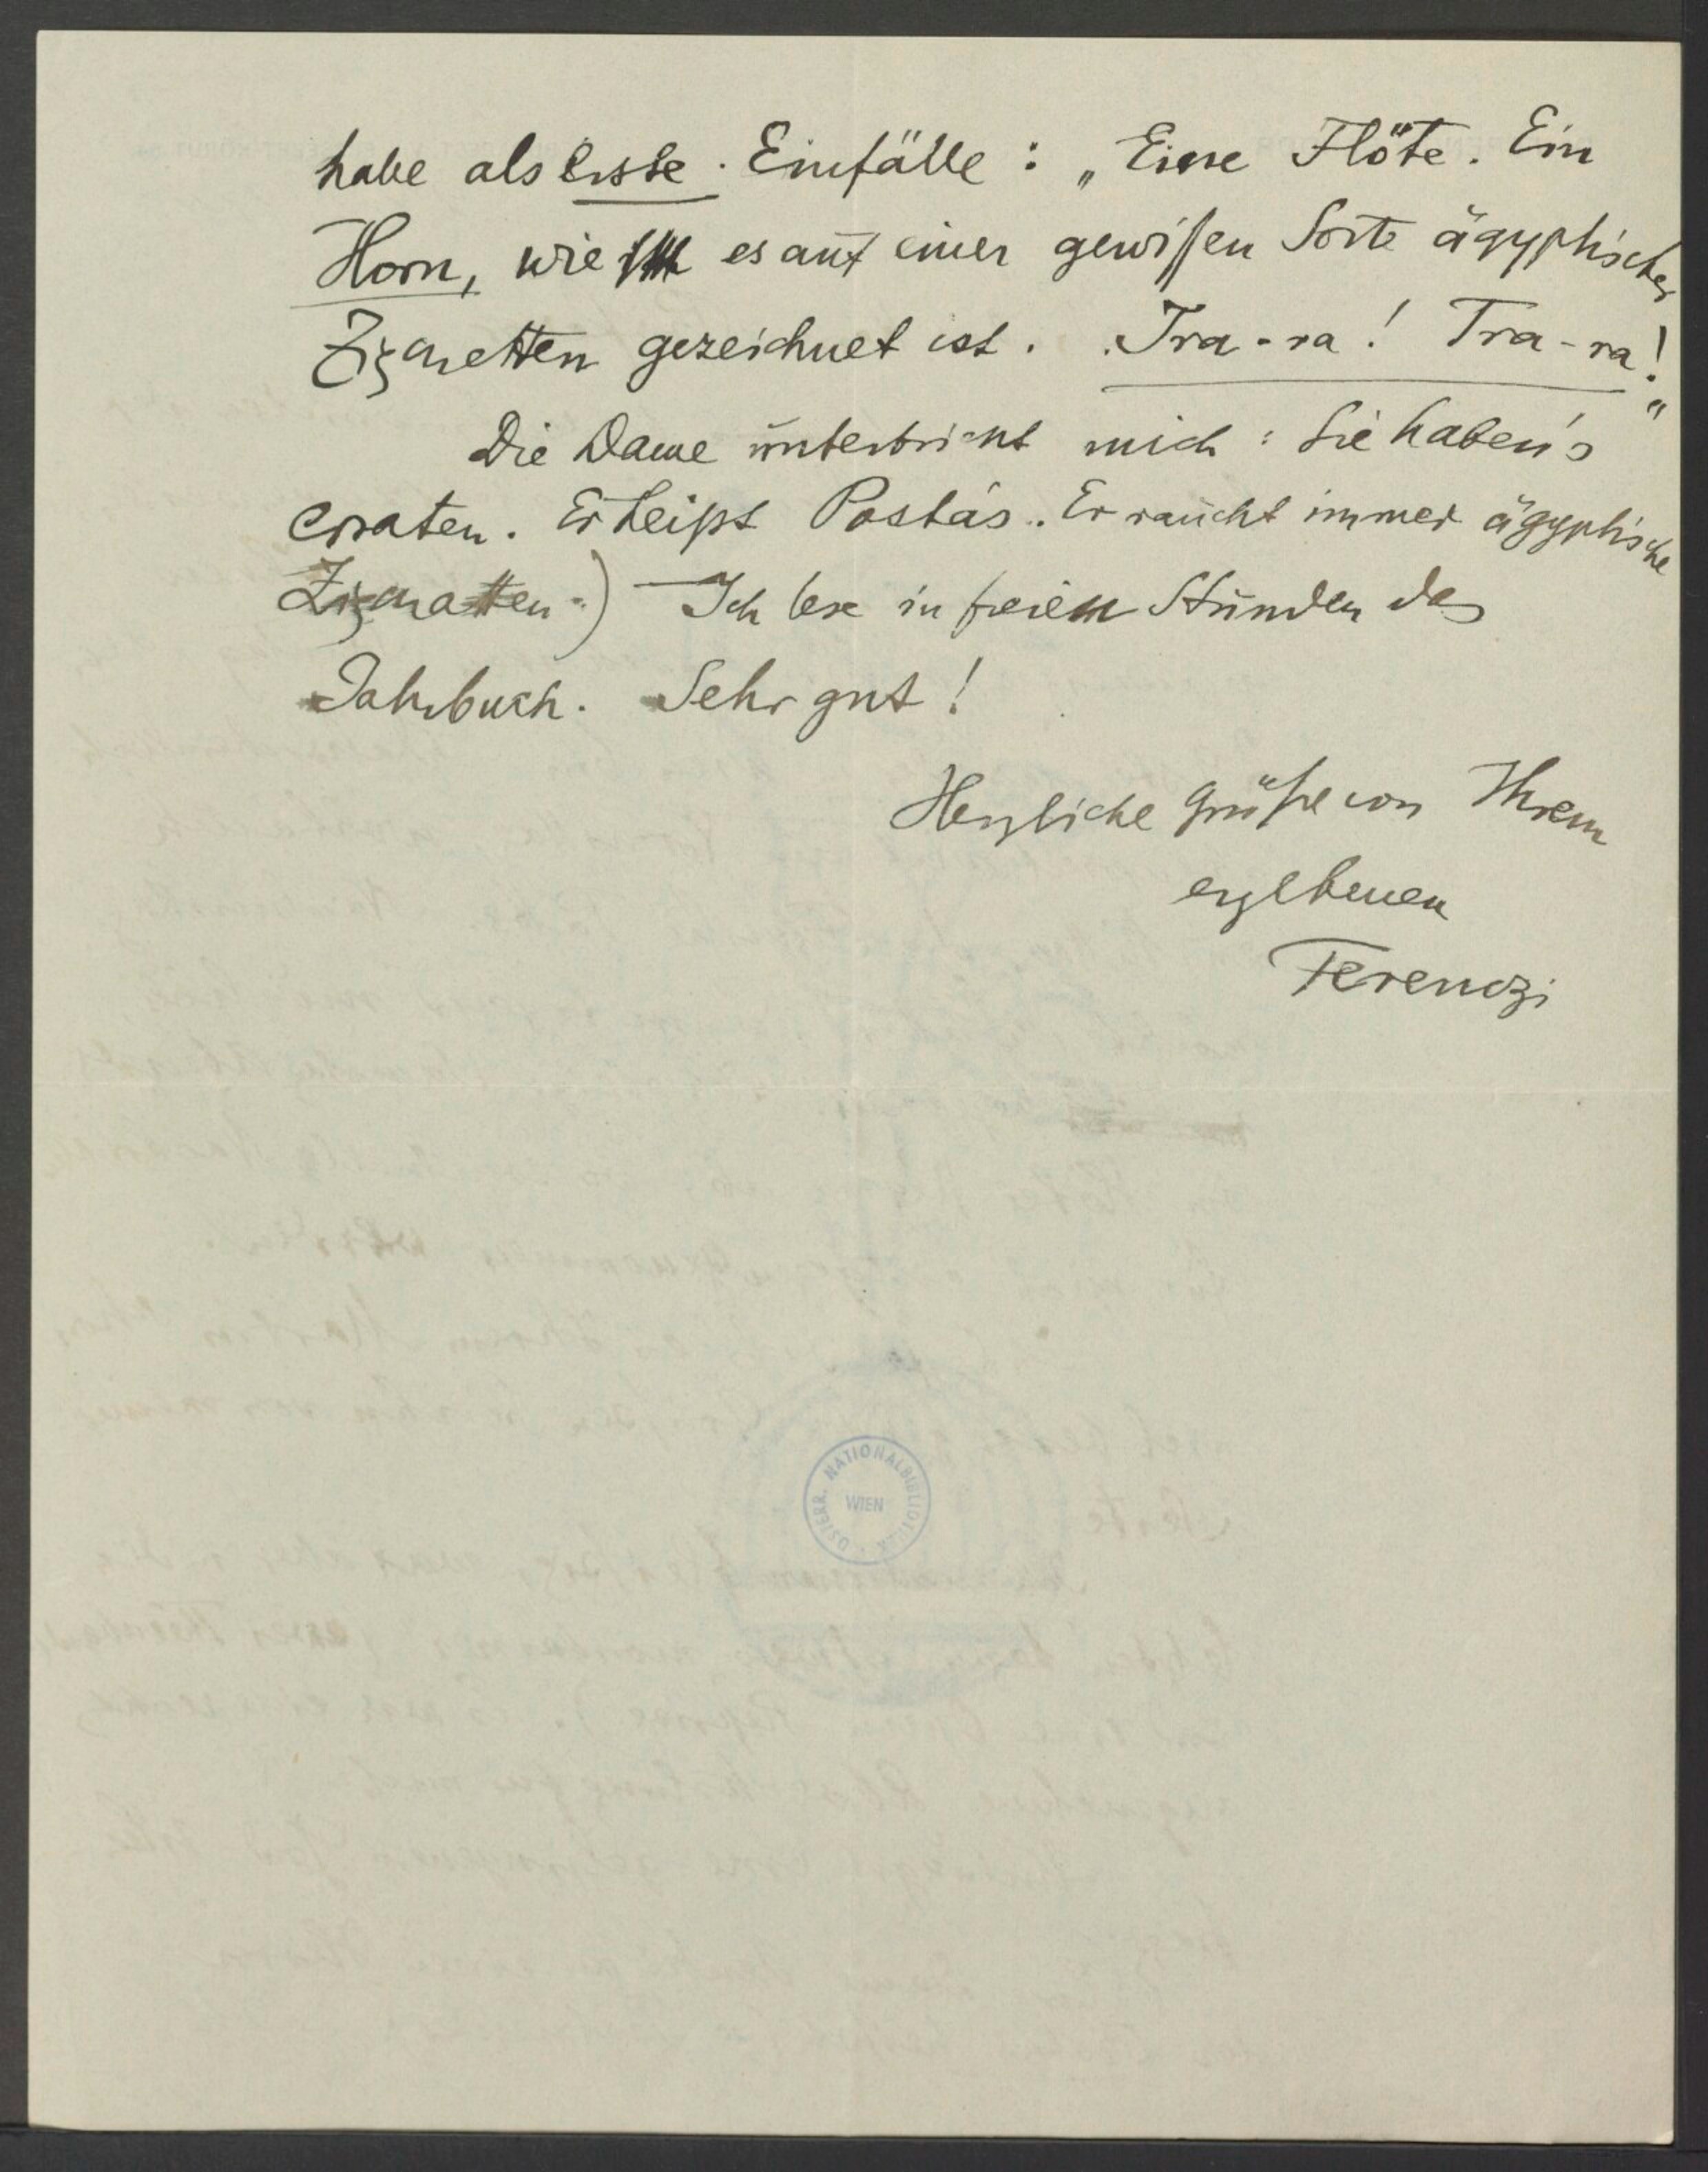 habe als erste Einfälle: „Eine Flöte. Ein
Horn, wie es auf einer gewissen Sorte ägyptischer
Zigaretten gezeichnet ist. Tra-ra! Tra-ra!"
Die Dame unterbricht mich: Sie haben's
erraten. Er heißt Postás. Er raucht immer ägyptische
Zigaretten.) – Ich lese in freien Stunden das
Jahrbuch. Sehr gut!
Herzliche Grüße von Ihrem
ergebenen
Ferenczi
ÖSTERR. NATIONALBIBLIOTHEK
WIEN